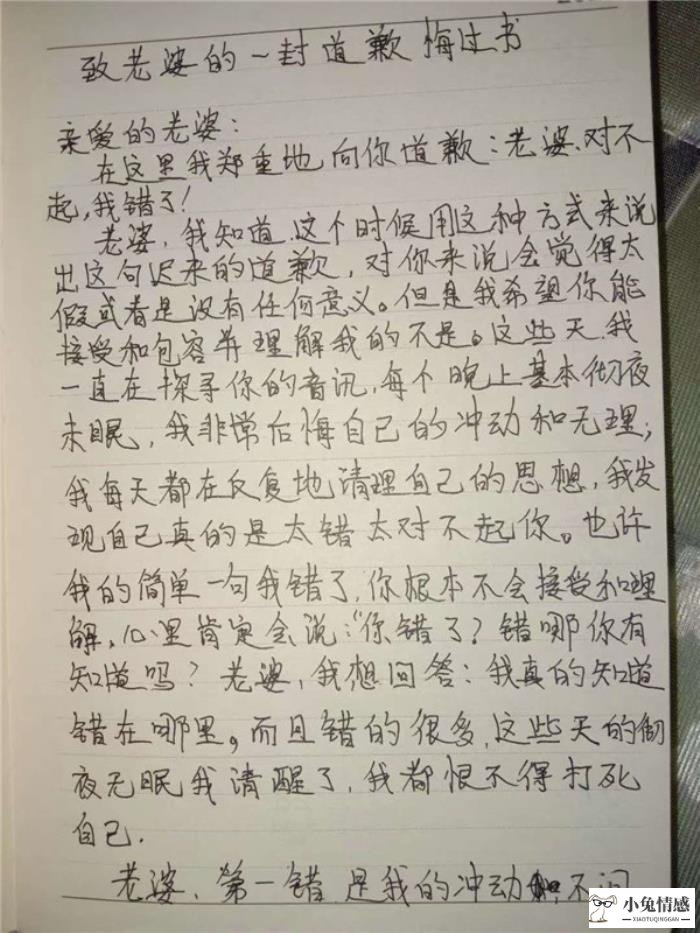 致老婆的一封道歉悔过书
亲爱的老婆：
在这里我郑重地向你道歉：老婆、对不
起,我错了!
老婆、我知道、这个时候用这种方式来说
出这句迟来的道歉，对你来说会觉得太
假或者是没有任何意义。但是我希望你能
接受和包容并理解我的不是。这些天、我
一直在探寻你的音讯,每个晚上基本彻夜
未眠，我非常后悔自己的冲动和无理；
我每天都在反复地清理自己的思想，我发
现自己真的是太错太对不起你。也许
我的简单一句我错了,你根本不会接受和理
解,心里肯定会说："你错了？错哪你有
知道吗？老婆，我想回答：我真的知道
错在哪里。而且错的很多、这些天的彻
夜无眠我清醒了，我都恨不得打死
自己.
老婆、第一错、是我的冲动和不问
小兔情感
XIAOTUQINGGAN